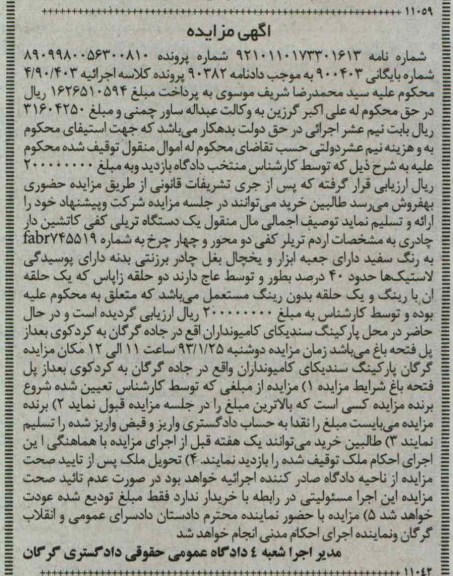 ۱۱۰۵۹
آگهی مزایده
شماره نامه ۹۲۱۰۱۱۰۱۷۳۳۰۱۶۱۳ شماره پرونده ۸۹۰۹۹۸۰۰۵۶۳۰۰۸۱۰
شماره بایگانی ۹۰۰۴۰۳ به موجب دادنامه ۹۰۳۸۲ پرونده کلاسه اجرائیه ۴/۹۰/۴۰۳
محکوم علیه سید محمدرضا شریف موسوی به پرداخت مبلغ ۱۶۲۶۵۱۰۵۹۴ ریال
در حق محکوم له علی اکبر گرزین به وکالت عبداله ساور چمنی و مبلغ ۳۱۶۰۴۲۵۰
ریال بابت نیم عشر اجرائی در حق دولت بدهکار می‌باشد که جهت استیفای محکوم
به و هزینه نیم عشردولتی حسب تقاضای محکوم له اموال منقول توقیف شده محکوم
علیه به شرح ذیل که توسط کارشناس منتخب دادگاه بازدید وبه مبلغ ۲۰۰۰۰۰۰۰۰
ریال ارزیابی قرار گرفته که پس از جری تشریفات قانونی از طریق مزایده حضوری
بهفروش می‌رسد طالبین خرید می‌توانند در جلسه مزایده شرکت وپیشنهاد خود را
ارائه و تسلیم نماید توصیف اجمالی مال منقول یک دستگاه تریلی کفی کاتشین دار
چادری به مشخصات اردم تریلر کفی دو محور و چهار چرخ به شماره fabr۷۴۵۵۱۹
به رنگ سفید دارای جعبه ابزار و یخچال بغل چادر برزنتی بدنه دارای پوسیدگی
لاستیک‌ها حدود ۴۰ درصد بطور و توسط عاج دارند دو حلقه زاپاس که یک حلقه
ان با رینگ و یک حلقه بدون رینگ مستعمل می‌باشد که متعلق به محکوم علیه
بوده و توسط کارشناس به مبلغ ۲۰۰۰۰۰۰۰۰ ریال ارزیابی گردیده است و در حال
حاضر در محل پارکینگ سندیکای کامیونداران اقع در جاده گرگان به کردکوی بعداز
پل فتحه باغ می‌باشد زمان مزایده دوشنبه ۹۳/۱/۲۵ ساعت ۱۱ الی ۱۲ مکان مزایده
گرگان پارکینگ سندیکای کامیونداران واقع در جاده گرگان به کردکوی بعداز پل
فتحه باغ شرایط مزایده ۱) مزایده از مبلغی که توسط کارشناس تعیین شده شروع
برنده مزایده کسی است که بالاترین مبلغ را در جلسه مزایده قبول نماید ۲) برنده
مزایده می‌بایست مبلغ را نقدا به حساب دادگستری واریز و قبض واریز شده را تسلیم
نمایند ۳) طالبین خرید می‌توانند یک هفته قبل از اجرای مزایده با هماهنگی این
اجرای احکام ملک توقیف شده را بازدید نمایند. ۴) تحویل ملک پس از تایید صحت
مزایده از ناحیه دادگاه صادر کننده اجرائیه خواهد بود در صورت عدم تائید صحت
مزایده این اجرا مسئولیتی در رابطه با خریدار ندارد فقط مبلغ تودیع شده عودت
خواهد شد ۵) مزایده با حضور نماینده محترم دادستان دادسرای عمومی و انقلاب
گرگان ونماینده اجرای احکام مدنی انجام خواهد شد
مدیر اجرا شعبه ٤ دادگاه عمومی حقوقی دادگستری گرگان
۱۱۰۴۲